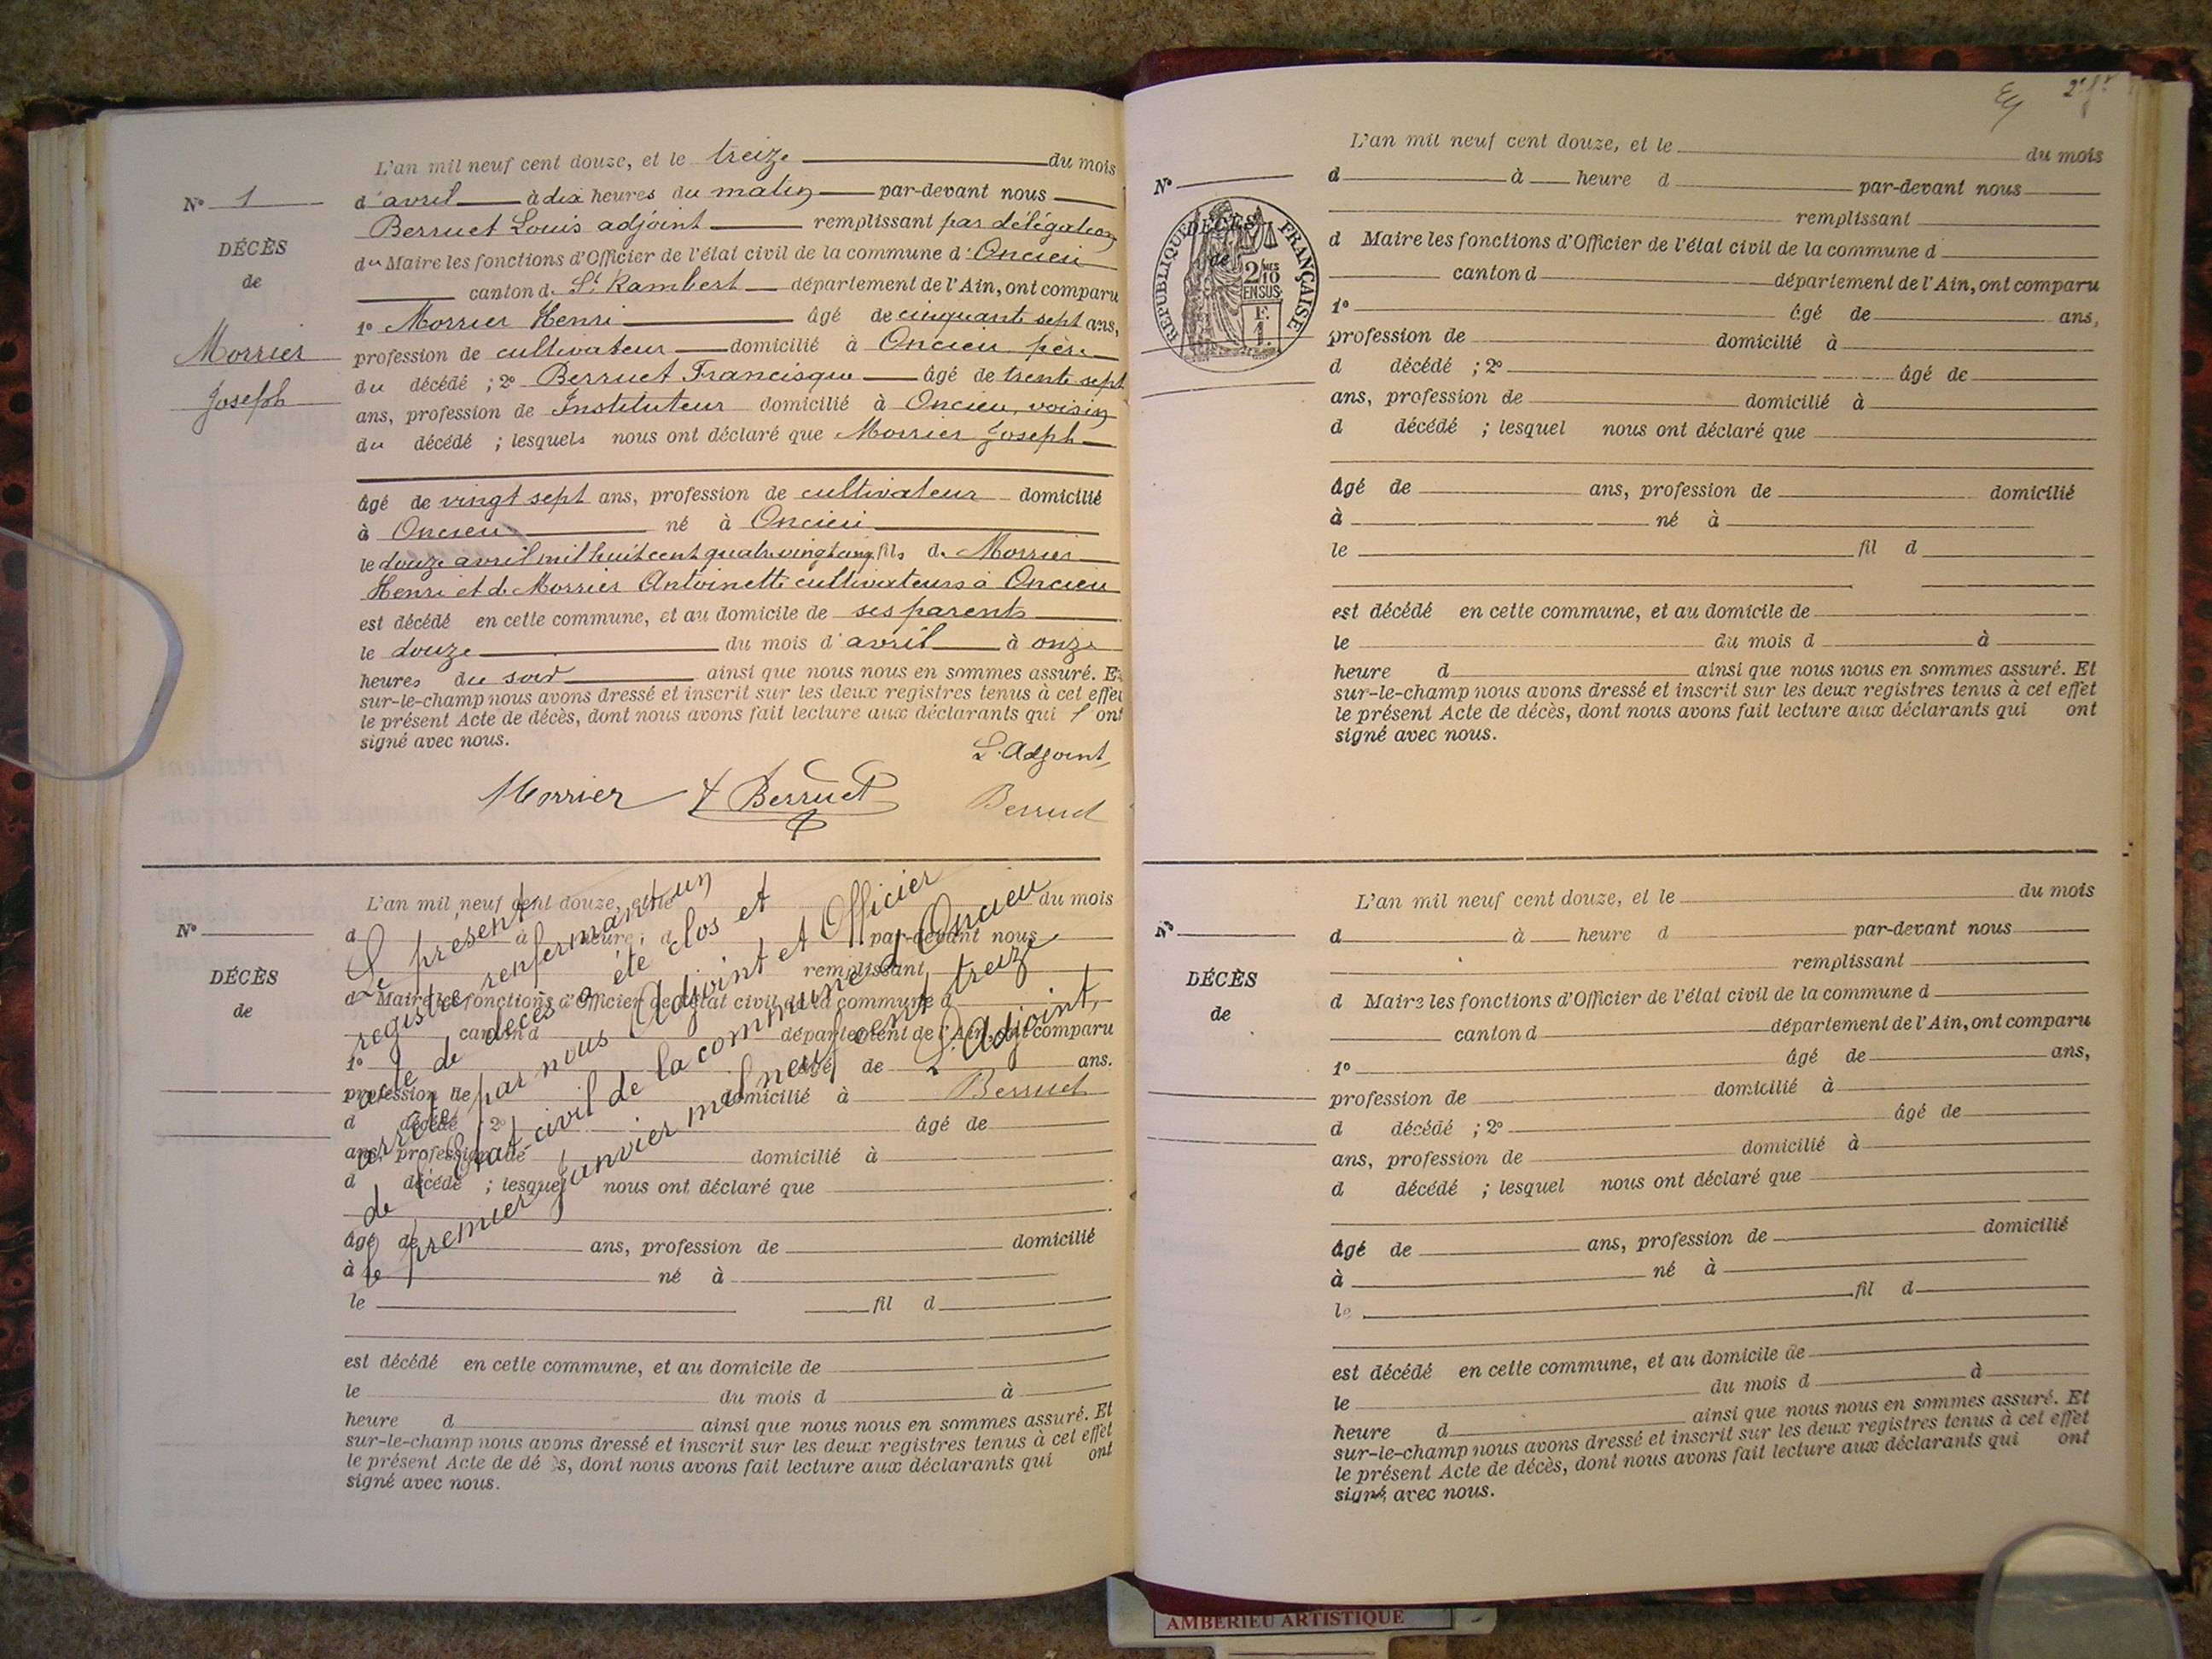 L'an mil neuf cent douze, et le treize du mois
N° 1
d'avril à dix heures du matin par-devant nous
Berruet Louis adjoint remplissant par délégation
DÉCÈS
du Maire les fonctions d'Officier de l'état civil de la commune d'Oncieu
de
canton de St Rambert département de l'Ain, ont comparu
1° Morrier Henri âgé de cinquante sept ans,
Morrier
profession de cultivateur domicilié à Oncieu père
du décédé ; 2° Berruet Francisque âgé de trente sept
Joseph
ans, profession de Instituteur domicilié à Oncieu, voisin
du décédé ; lesquels nous ont déclaré que Morrier Joseph
âgé de vingt sept ans, profession de cultivateur domicilié
à Oncieu né à Oncieu
le douze avril mil huit cent quatre vingt cinq fils de Morrier
Henri et de Morrier Antoinette cultivateurs à Oncieu
est décédé en cette commune, et au domicile de ses parents
le douze du mois d'avril à onze
heures du soir ainsi que nous nous en sommes assuré. Et
sur-le-champ nous avons dressé et inscrit sur les deux registres tenus à cet effet
le présent Acte de décès, dont nous avons fait lecture aux déclarants qui l'ont
signé avec nous.
L'Adjoint,
Morrier F Berruet Berruet
L'an mil neuf cent douze, et le du mois
N°
d à heure d par-devant nous
remplissant
DÉCÈS
d Maire les fonctions d'Officier de l'état civil de la commune d
de
canton d département de l'Ain, ont comparu
1° âgé de ans.
profession de domicilié à
d décédé ; 2° âgé de
ans, profession de domicilié à
d décédé ; lesquel nous ont déclaré que
âgé de ans, profession de domicilié
à né à
le fil d
est décédé en cette commune, et au domicile de
le du mois d à
heure d ainsi que nous nous en sommes assuré. Et
sur-le-champ nous avons dressé et inscrit sur les deux registres tenus à cet effet
le présent Acte de dé s, dont nous avons fait lecture aux déclarants qui ont
signé avec nous.
Le présent
registre renfermant un
acte de décès a été clos et
arrêté par nous Adjoint et Officier
de l'Etat-civil de la commune d'Oncieu
le premier Janvier mil neuf cent treize
L'Adjoint,
Berruet
L'an mil neuf cent douze, et le du mois
N°
d à heure d par-devant nous
remplissant
DÉCÈS
de
RÉPUBLIQUE FRANÇAISE
2/10 MES
EN SUS
F.
1.
d Maire les fonctions d'Officier de l'état civil de la commune d
canton d département de l'Ain, ont comparu
1° âgé de ans,
profession de domicilié à
d décédé ; 2° âgé de
ans, profession de domicilié à
d décédé ; lesquel nous ont déclaré que
âgé de ans, profession de domicilié
à né à
le fil d
est décédé en cette commune, et au domicile de
le du mois d à
heure d ainsi que nous nous en sommes assuré. Et
sur-le-champ nous avons dressé et inscrit sur les deux registres tenus à cet effet
le présent Acte de décès, dont nous avons fait lecture aux déclarants qui ont
signé avec nous.
L'an mil neuf cent douze, et le du mois
N°
d à heure d par-devant nous
remplissant
DÉCÈS
d Maire les fonctions d'Officier de l'état civil de la commune d
de
canton d département de l'Ain, ont comparu
1° âgé de ans,
profession de domicilié à
d décédé ; 2° âgé de
ans, profession de domicilié à
d décédé ; lesquel nous ont déclaré que
âgé de ans, profession de domicilié
à né à
le fil d
est décédé en cette commune, et au domicile de
le du mois d à
heure d ainsi que nous nous en sommes assuré. Et
sur-le-champ nous avons dressé et inscrit sur les deux registres tenus à cet effet
le présent Acte de décès, dont nous avons fait lecture aux déclarants qui ont
signé avec nous.
AMBERIEU ARTISTIQUE